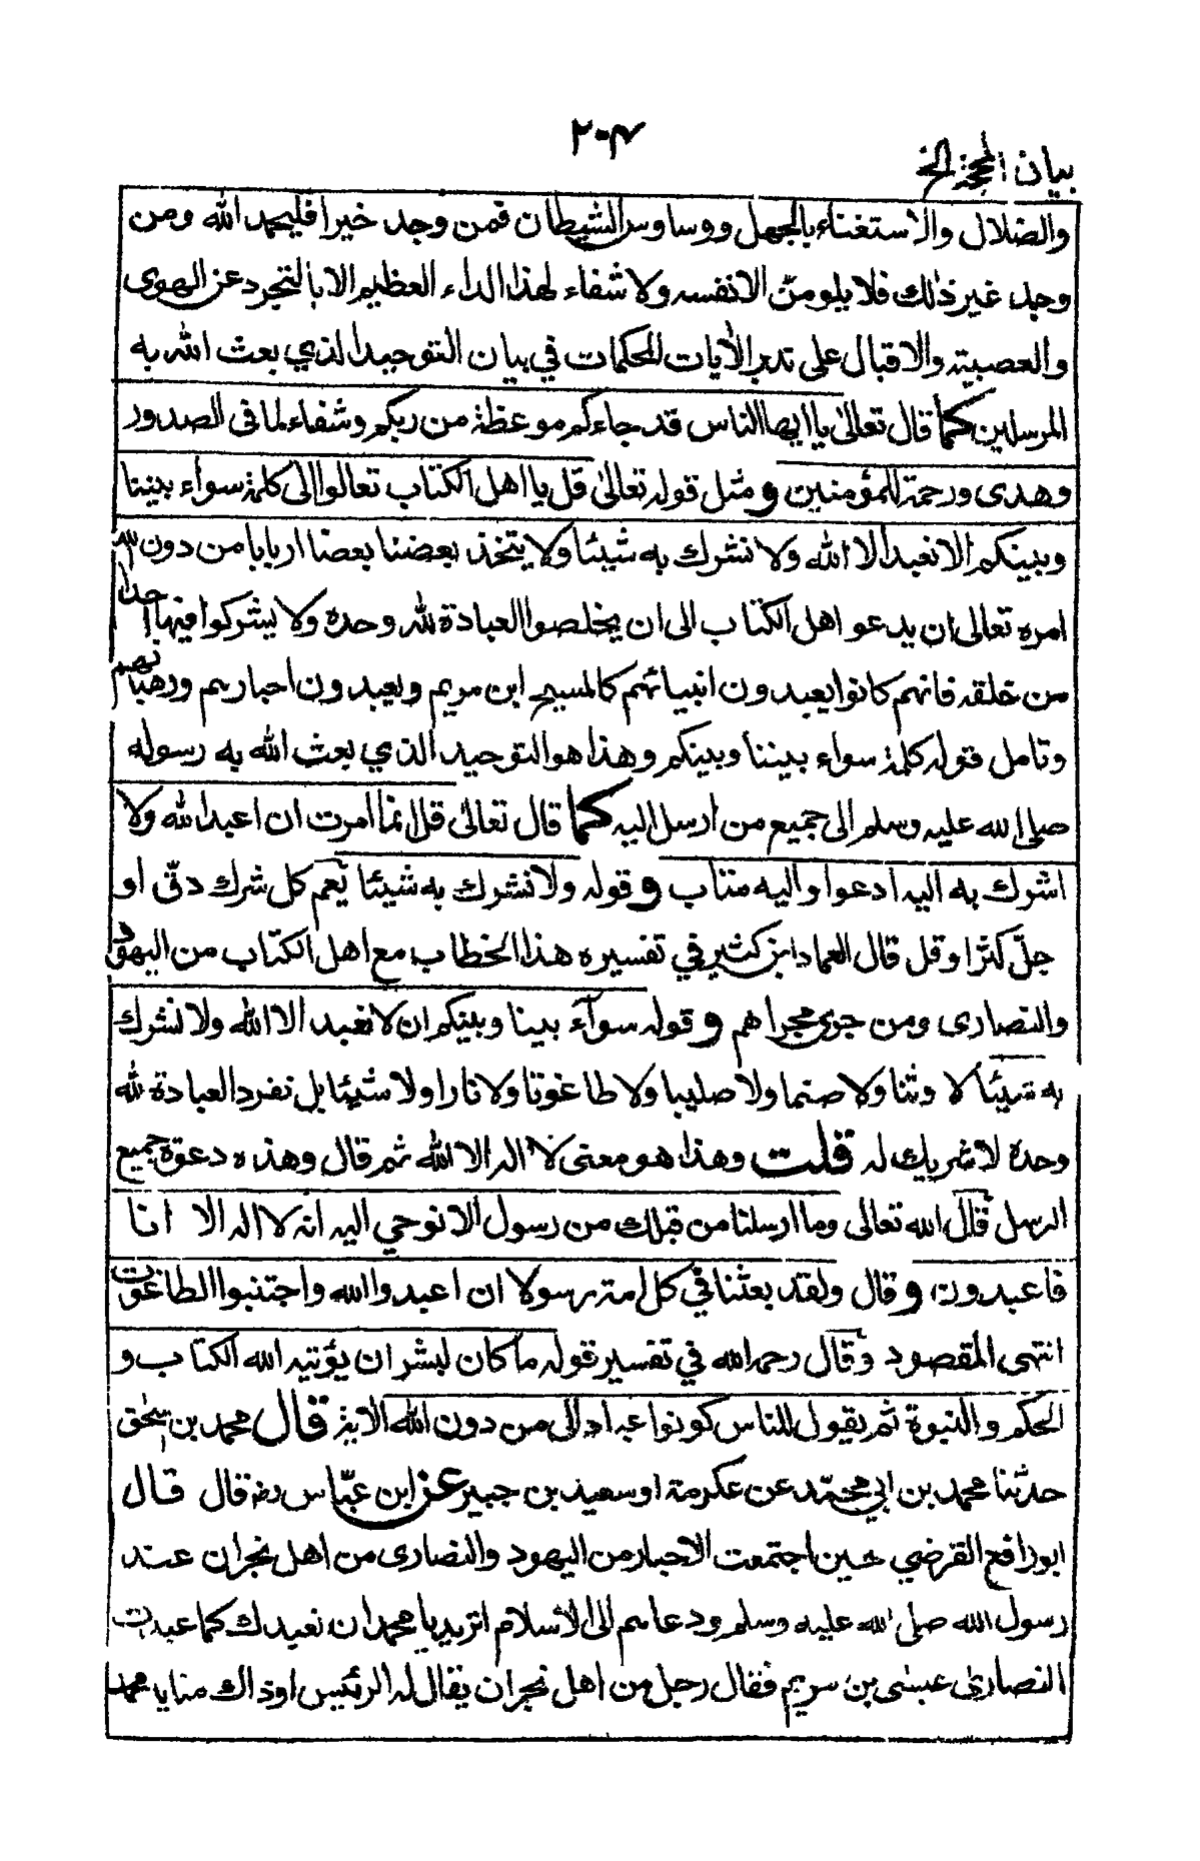 ٢٠٤
بيان المحجة الخ
والضلال والاستغناء بالجهل ووساوس الشيطان فمن وجد خيرا فليحمد الله ومن
وجد غير ذلك فلا يلومنّ الا نفسه ولا شفاء لهذا الداء العظيم الا بالتجرد عن الهوى
والعصبية والاقبال على تدبر الأيات المحكمات في بيان التوحيد الذي بعث الله به
المرسلين كما قال تعالىٰ يا ايها الناس قد جاءكم موعظة من ربكم وشفاء لما في الصدور
وهدى ورحمة للمؤمنين و مثل قوله تعالىٰ قل يا اهل الكتاب تعالوا الى كلمة سواء بيننا
وبينكم الا نعبد الا الله ولا نشرك به شيئا ولا يتخذ بعضنا بعضا اربابا من دون الله
امره تعالى ان يدعو اهل الكتاب الى ان يخلصوا العبادة لله وحده ولا يشركوا فيها احدا
من خلقه فانهم كانوا يعبدون انبيائهم كالمسيح ابن مريم ويعبدون احبارهم ورهبانهم
وتامل قوله كلمة سواء بيننا وبينكم وهذا هو التوحيد الذي بعث الله به رسوله
صلى الله عليه وسلم الى جميع من ارسل اليه كما قال تعالىٰ قل انما امرت ان اعبد الله ولا
اشرك به اليه ادعوا واليه متاب و قوله ولا نشرك به شيئا يعم كل شرك دقّ او
جلّ كثر او قل قال العماد ابن كثير في تفسيره هذا الخطاب مع اهل الكتاب من اليهود
والنصارى ومن جرى مجراهم و قوله سوآء بيننا وبينكم ان لا نعبد الا الله ولا نشرك
به شيئا لا وثنا ولا صنما ولا صليبا ولا طاغوتا ولا نارا ولا شيئا بل نفرد العبادة لله
وحده لا شريك له قلت وهذا هو معنى لا اله الا الله ثم قال وهذه دعوة جميع
الرسل قال الله تعالى وما ارسلنا من قبلك من رسول الا نوحي اليه انه لا اله الا انا
فاعبدون و قال ولقد بعثنا في كل امة رسولا ان اعبدوا الله واجتنبوا الطاغوت
انتهى المقصود وقال رحمه الله في تفسير قوله ما كان لبشر ان يؤتيه الله الكتاب و
الحكم والنبوة ثم يقول للناس كونوا عبادا لي من دون الله الاية قال محمد بن اسحٰق
حدثنا محمد بن ابي محمّد عن عكرمة او سعيد بن جبير عن ابن عبّاس رضه قال قال
ابو رافع القرضي حين اجتمعت الاحبار من اليهود والنصارى من اهل نجران عند
رسول الله صلى الله عليه وسلم ودعاهم الى الاسلام اتريد يا محمد ان نعبدك كما عبدت
النصارىٰ عيسٰى بن مريم فقال رجل من اهل نجران يقال له الرئيس اوذاك منا يا محمد